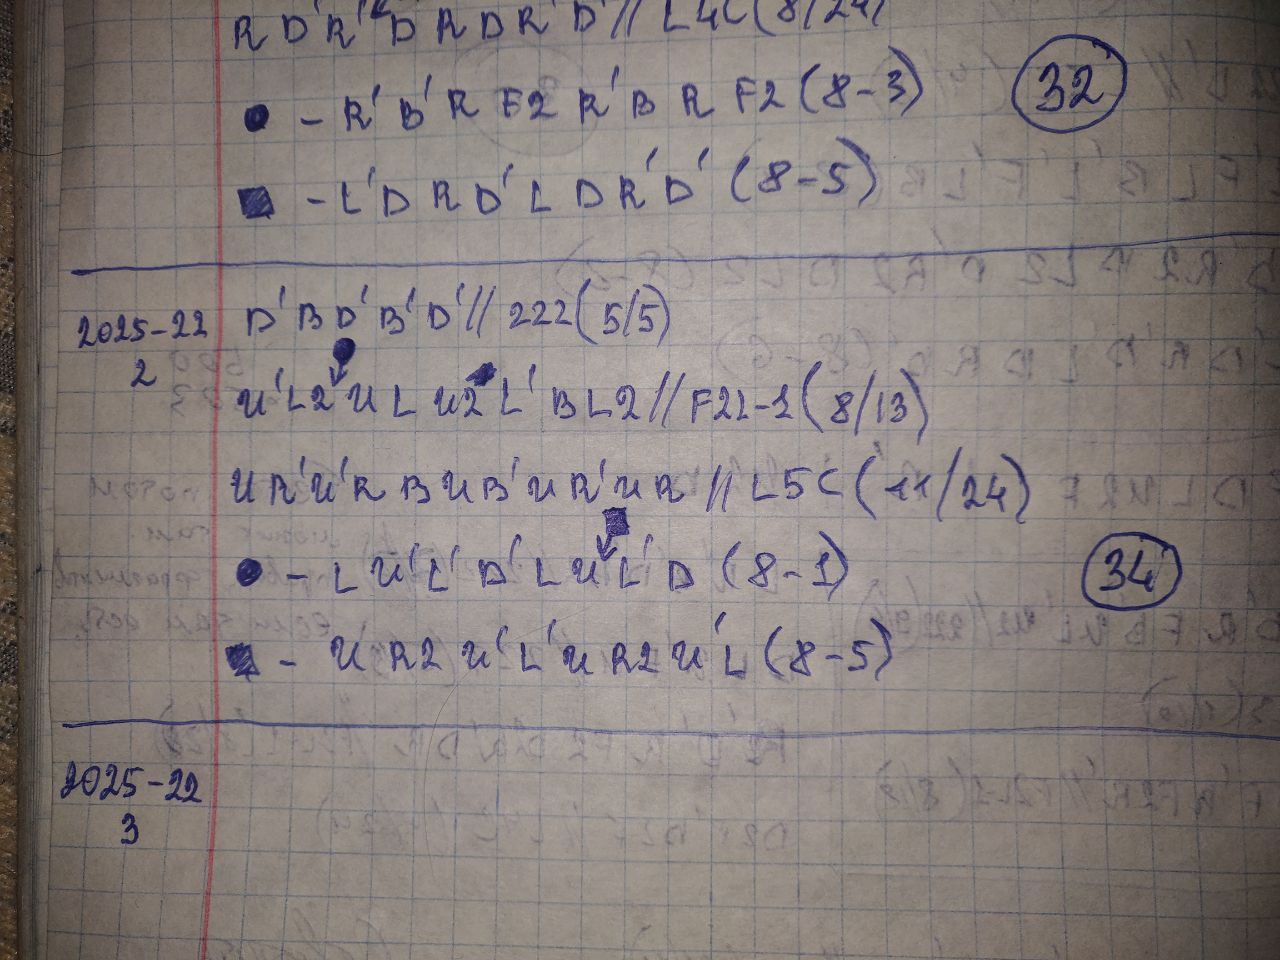 R D' R' D R D R' D' // L4C (8/24)
● - R' B' R F2 R' B R F2 (8-3) 32
■ - L' D R D' L D R' D' (8-5)
2025-22 D' B D' B' D' // 222 (5/5)
2
U' L2 U L U2 L' B L2 // F2L-1 (8/13)
U R' U' R B U B' U R' U R // L5C (11/24)
● - L U' L' D' L U L' D (8-1) 34
■ - U' R2 U' L' U R2 U' L (8-5)
2025-22
3